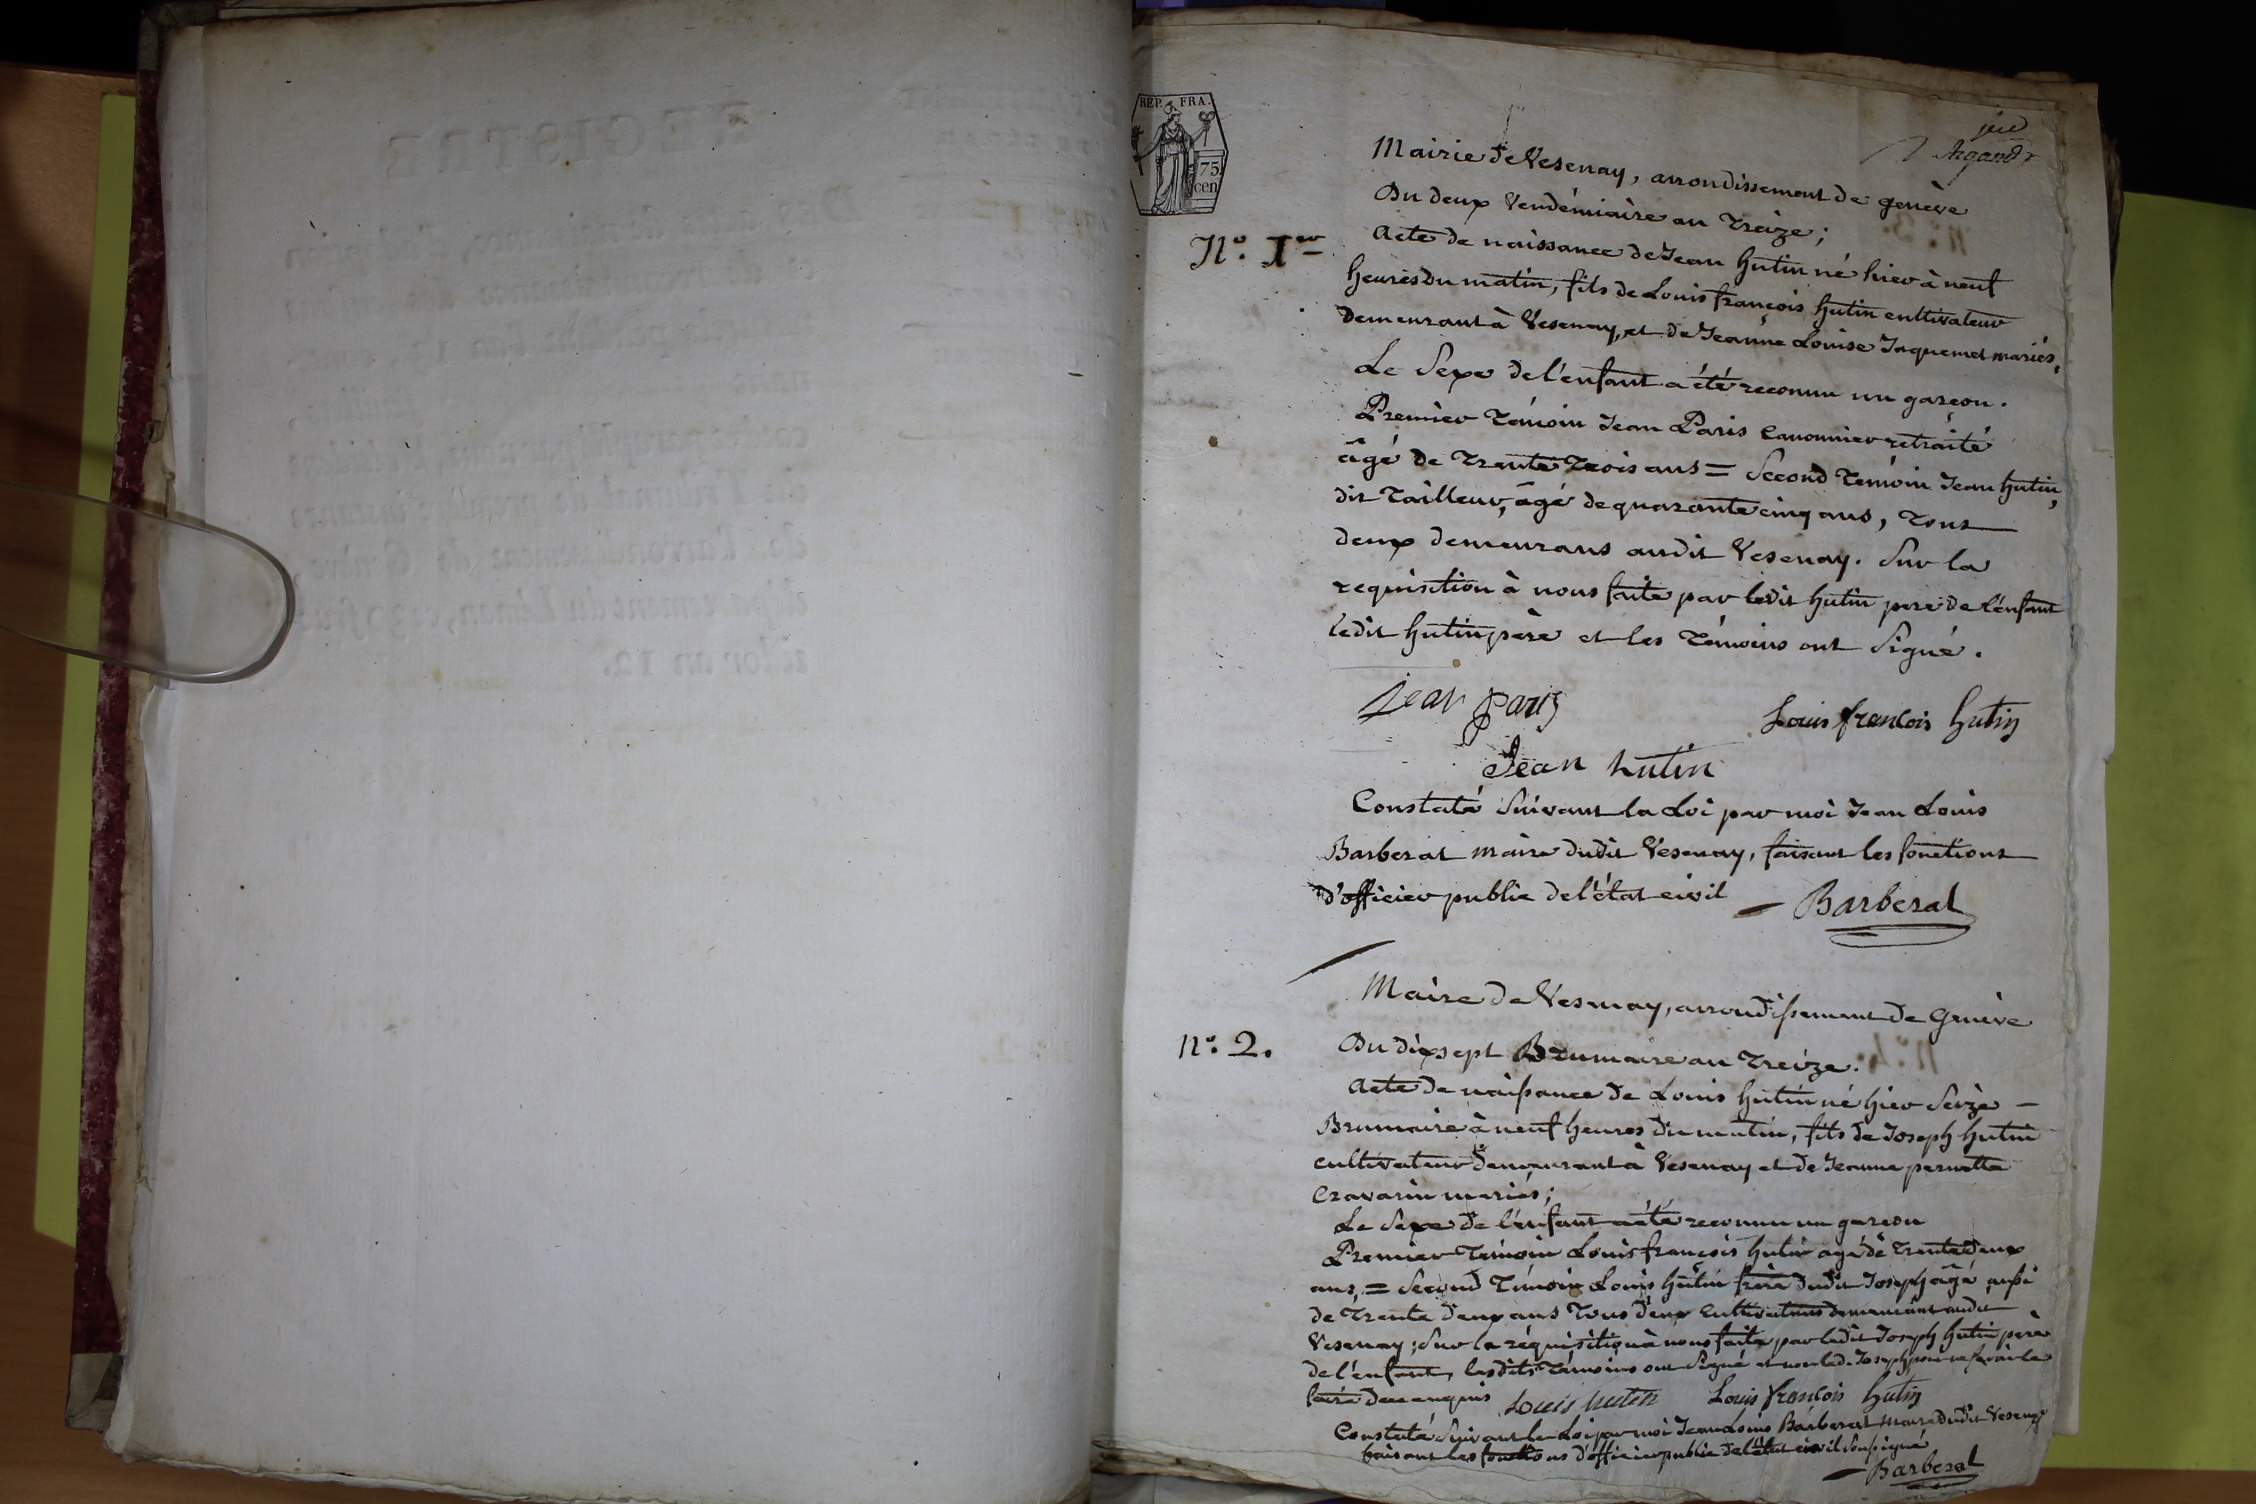 REP. FRA.
75
cen
Argand
Mairie de Vesenay, arrondissement de genève
Du deux Vendémiaire an Treize;
N.º I.er
Acte de naissance de Jean hutin né hier à neuf
heures du matin, fils de Louis françois hutin cultivateur
demeurant à Vesenay, et de Jeanne Louise Jaquemet mariés.
Le Sexe de l'enfant a été reconnu un garçon.
Premier Témoin Jean Paris Canonnier retraité
âgé de Trente Trois ans = Second Témoin Jean hutin,
dit Tailleur, âgé de quarante cinq ans, Tous
deux demeurans audit Vesenay. Sur la
requisition à nous faite par ledit hutin pere de l'enfant
ledit hutin père et les Témoins ont Signé.
jean paris
Louis francois hutin
Jean hutin
Constaté Suivant la Loi par moi Jean Louis
Barberat maire dudit Vesenay, faisant les fonctions
d'officier public de l'état civil
Barberat
Maire de Vesnay, arrondissement de Genève
n.º 2.
Du dixsept Brumaire an Treize.
Acte de naissance de Louis hutin né hier Seize
Brumaire à neuf heures du matin, fils de Joseph hutin
cultivateur demeurant à Vesenay et de Jeanne pernette
Cravarin mariés;
Le Sexe de l'enfant a été reconnu un garcon
Premier Témoin Louis francois hutin agé de Trente deux
ans, = Second Témoin Louis hutin frère dudit Joseph âgé aussi
de Trente deux ans Tous deux Cultivateurs demeurant audit
Vesenay; Sur la réquisition à nous faite par ledit Joseph hutin père
de l'enfant, lesdits Témoins ont Signé et non led. Joseph pour ne savoir le
faire de ce enquis
Louis hutin
Louis francois hutin
Constaté Suivant la Loi par moi Jean Louis Barberat maire dudit Vesenay
faisant les fonctions d'officier public de l'état civil Soussigné
Barberat